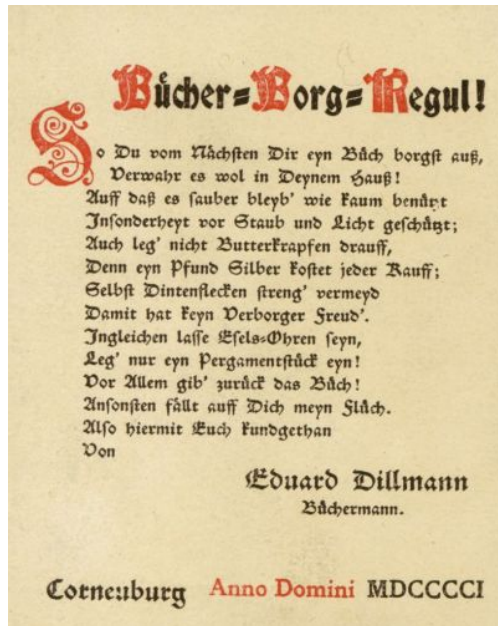 Bůcher=Borg=Regul!
So Du vom Nåchsten Dir eyn Bůch borgst auß,
Verwahr es wol in Deynem Hauß!
Auff daß es sauber bleyb' wie kaum benützt
Insonderheyt vor Staub und Licht geschůtzt;
Auch leg' nicht Butterkrapfen drauff,
Denn eyn Pfund Silber kostet jeder Kauff;
Selbst Dintenflecken streng' vermeyd
Damit hat keyn Verborger Freud'.
Ingleichen lasse Esels=Ohren seyn,
Leg' nur eyn Pergamentstůck eyn!
Vor Allem gib' zurůck das Bůch!
Ansonsten fållt auff Dich meyn Flůch.
Also hiermit Euch kundgethan
Von
Eduard Dillmann
Bůchermann.
Corneuburg Anno Domini MDCCCCI